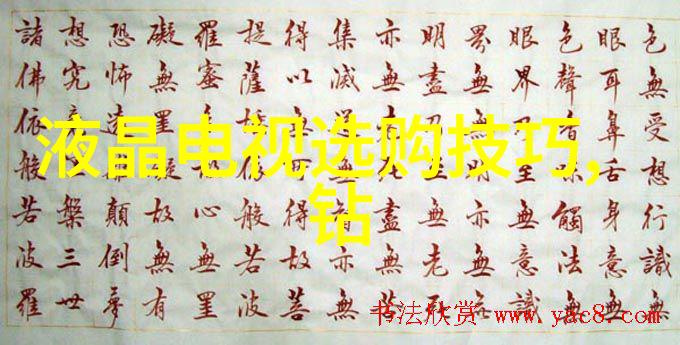 液晶电视选购技巧,
钻
色無受想行識無
眼耳鼻舌身意無
色聲香味觸法無
眼界至無意識
界無明亦無
明盡至無老
亦無老盡無苦
集滅道智亦無
得以無得故菩
提薩依般若波
羅蜜故心無罣
礙無罣礙故無有
恐怖遠顛倒夢
想究槃三世
諸佛依般若波羅
书法欣赏 www.yac8.com